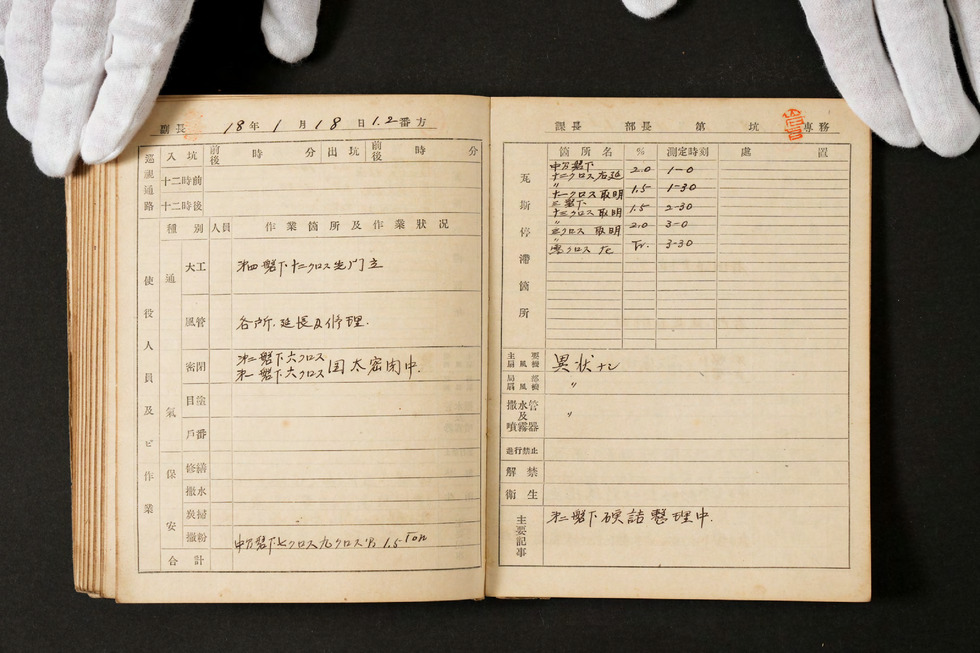 副長 18年 1月 18日 1.2番方
巡視通路
入坑 前後 時 分 出坑 前後 時 分
十二時前
十二時後
使役人員及ビ作業
種別 人員 作業箇所及作業狀况
通氣
大工 第四盤下十二クロス先門立
風管 各所.延長及修理.
密閉 第二盤下六クロス
第一盤下六クロス 密閉中.
目塗
戶番
保安
修繕
撒水
炭掃
撒粉 クロス九クロス 1.5 Ton
合計
課長 部長 第 坑 專務
瓦斯停滯箇所
箇所名 % 測定時刻 處置
十二クロス右延 2.0 1-0
〃 十一クロス取明 1.5 1-30
三盤下 十三クロス取明 1.5 2-30
〃 クロス取明 2.0 3-0
〃 クロス Tr. 3-30
主要扇風機 異狀ナシ
局部扇風機 〃
撒水管及噴霧器 〃
進行禁止
解禁
衛生
主要記事 第二盤下硬詰整理中.